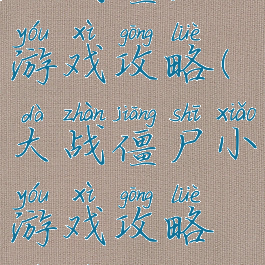 yóu xì gōng lüè
游戏攻略(
dà zhàn jiāng shī xiǎo
大战僵尸小
yóu xì gōng lüè
游戏攻略